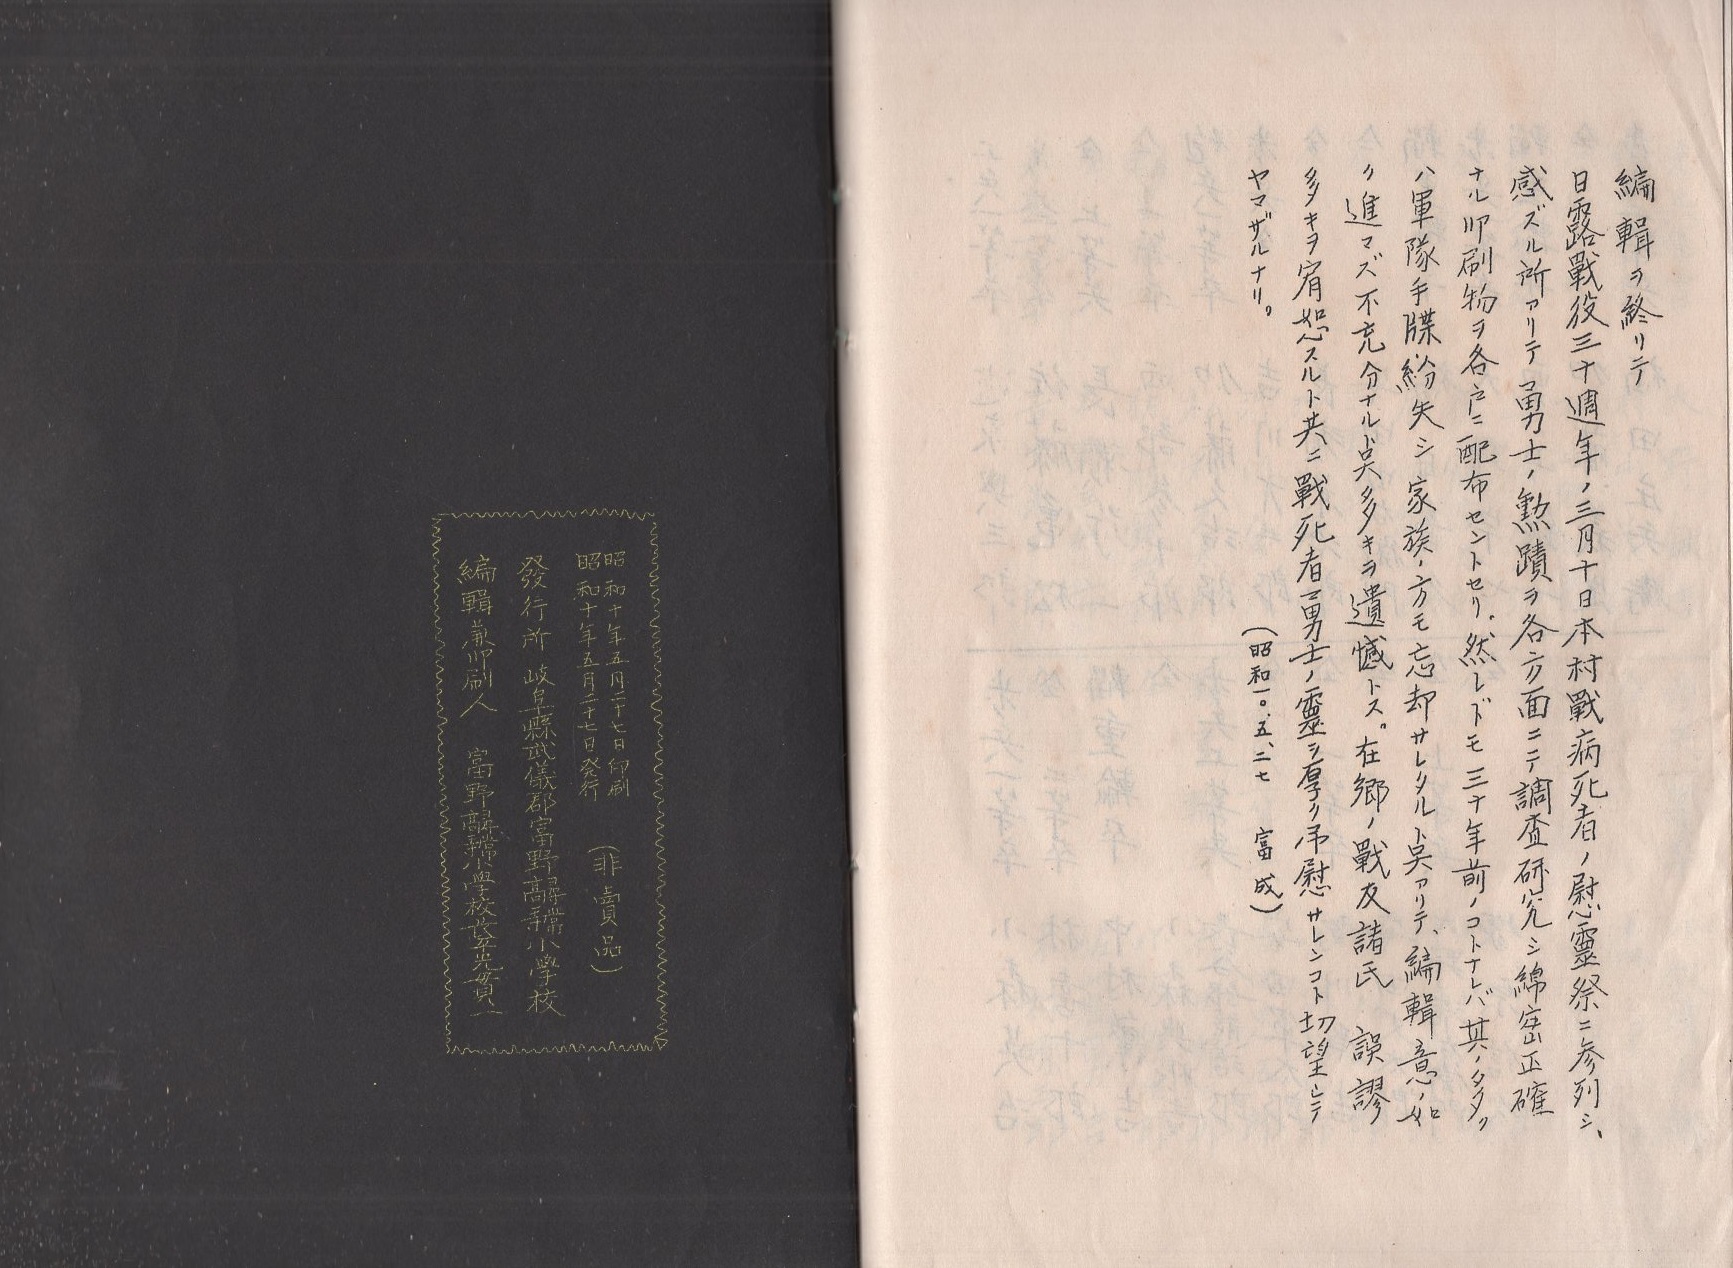 編輯ヲ終リテ
日露戰役三十週年ノ三月十日本村戰病死者ノ慰靈祭ニ参列シ、
感ズル所アリテ勇士ノ勲蹟ヲ各方面ニテ調査研究シ綿密正確
ナル印刷物ヲ各戸ニ配布セントセリ。然レドモ三十年前ノコトナレバ其ノ多ク
ハ軍隊手牒紛失シ家族ノ方モ忘却サレタル点アリテ、編輯意ノ如
ク進マズ不充分ナル点多キヲ遺憾トス。在郷ノ戰友諸氏 誤謬
多キヲ宥恕スルト共ニ戰死者勇士ノ靈ヲ厚ク弔慰サレンコト切望シテ
ヤマザルナリ。
(昭和一〇、五、二七 富成)
昭和十年五月二十七日印刷
昭和十年五月二十七日発行 (非賣品)
發行所 岐阜縣武儀郡富野高等尋常小學校
編輯兼印刷人 富野尋常高等小學校長